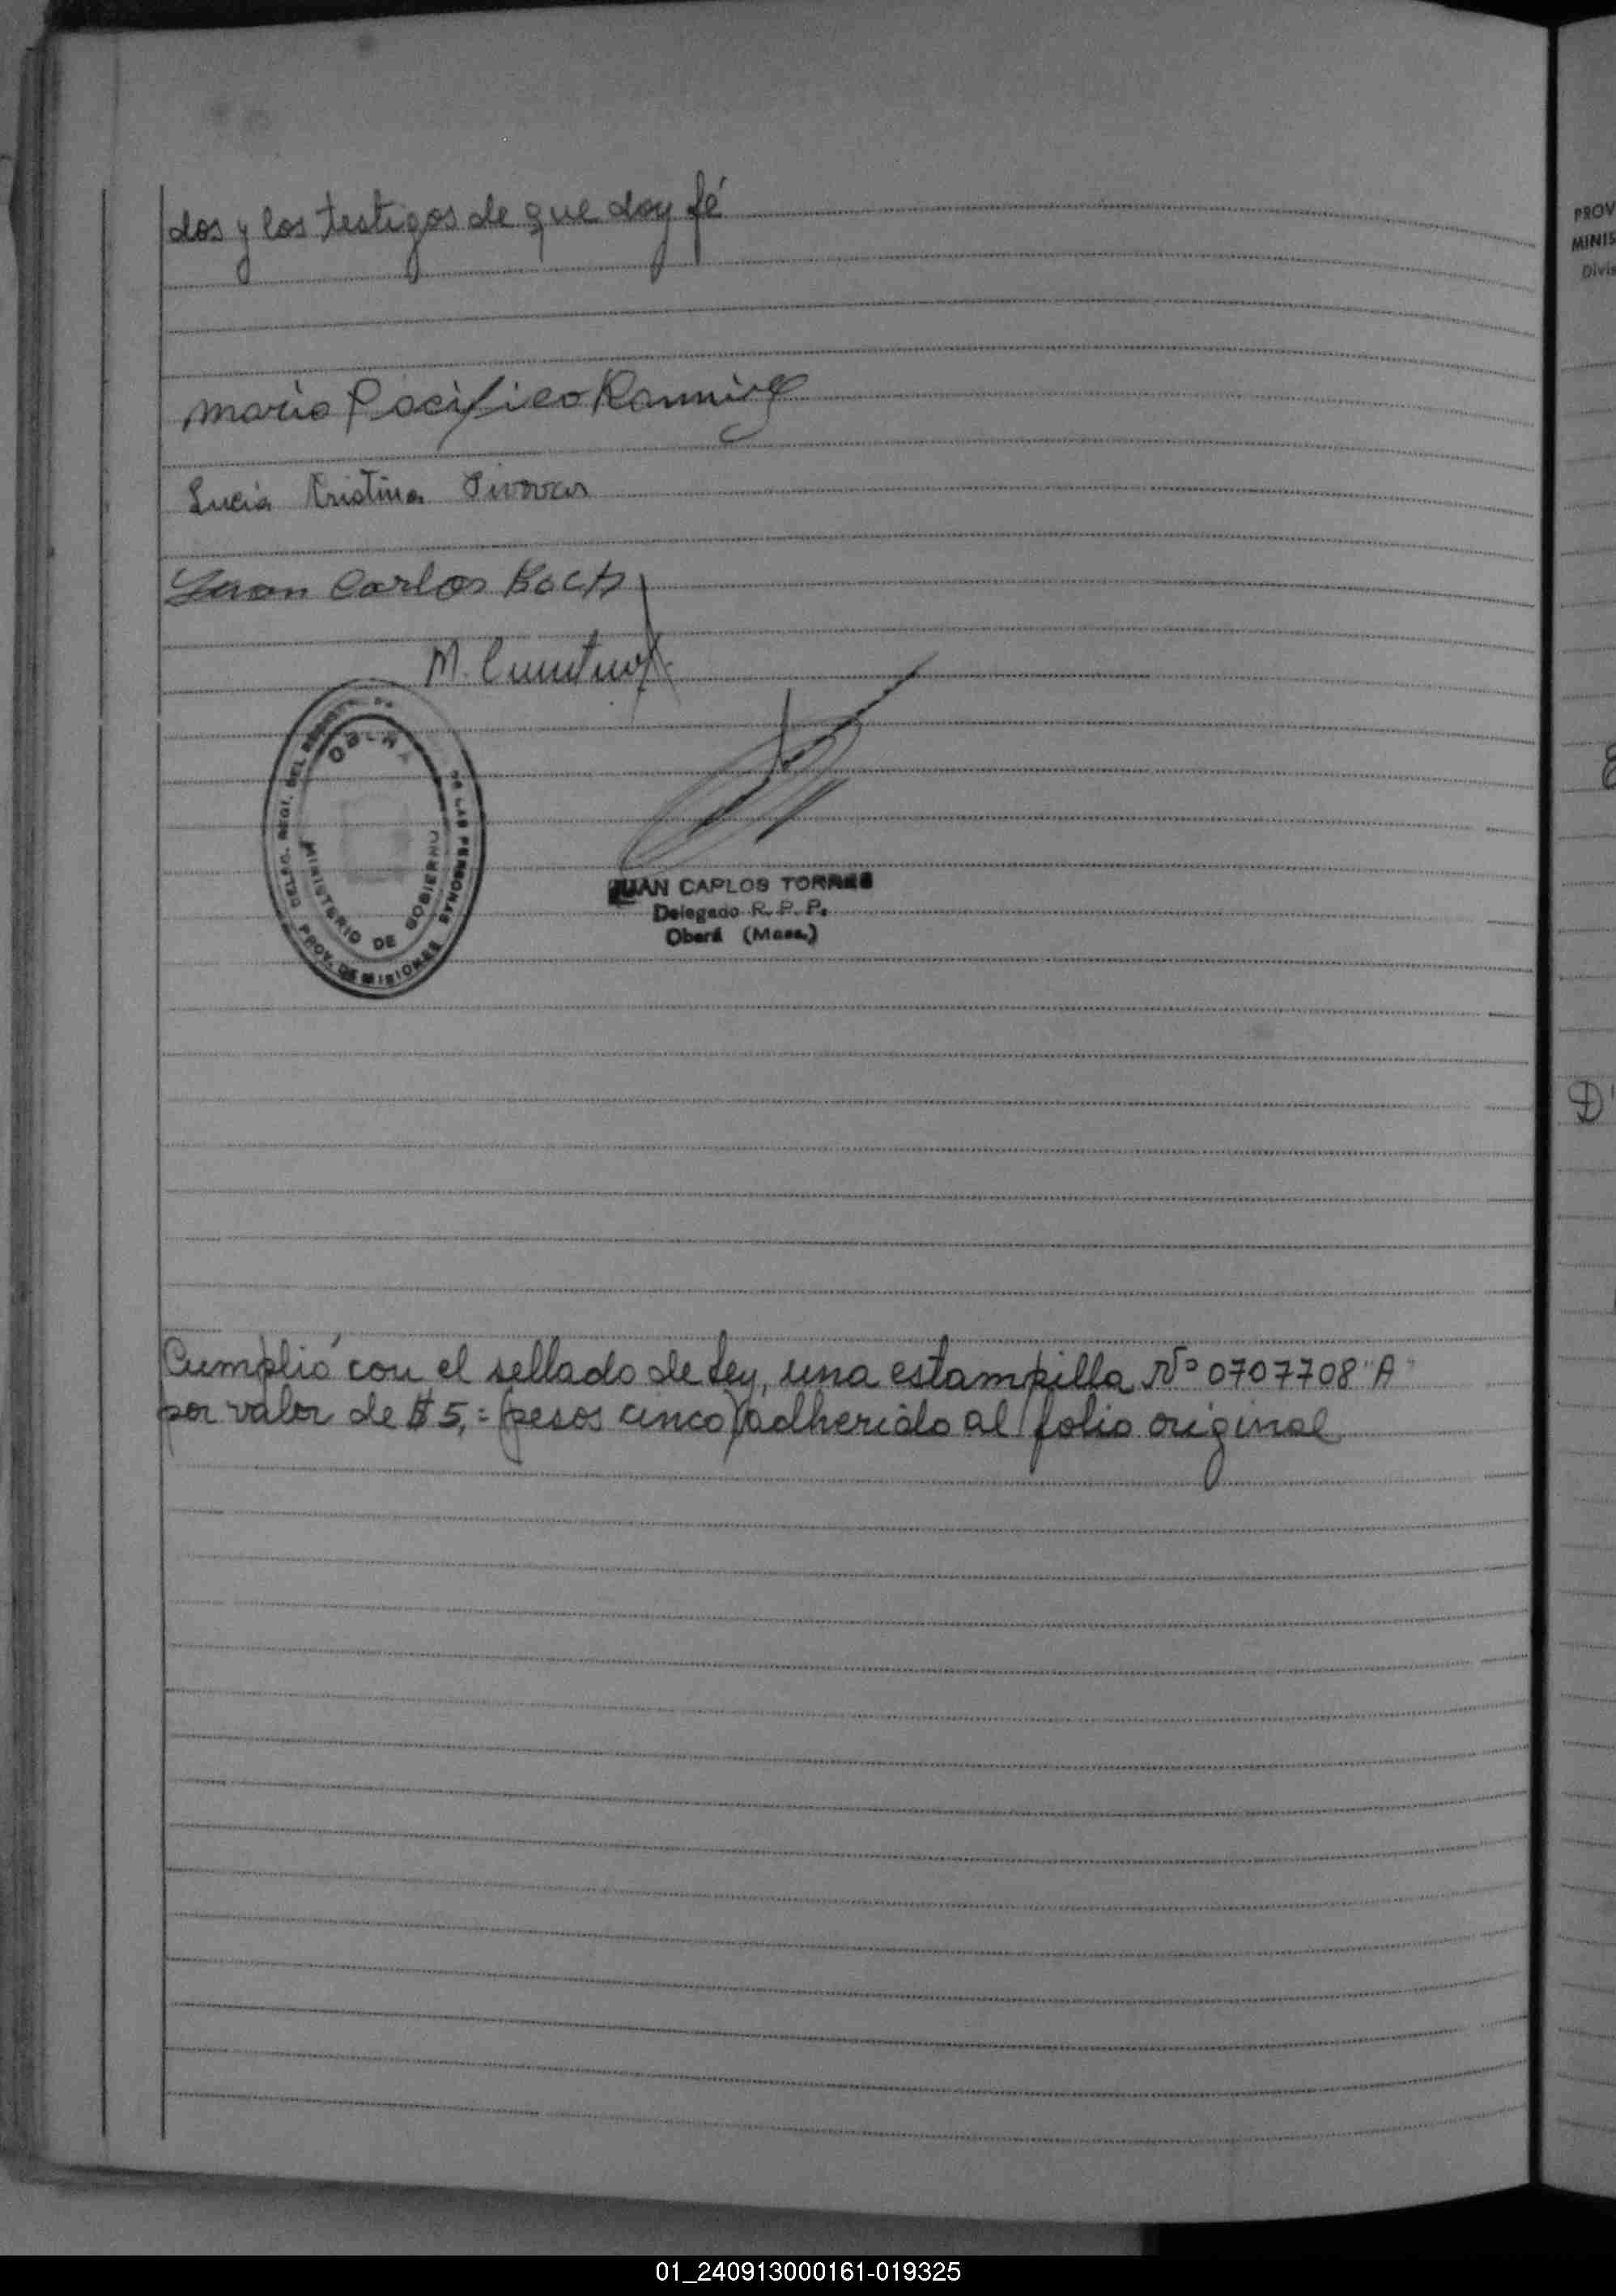 dos y los testigos de que doy fé
Mario Pacifico Ramirez
Lucia Kristina
Juan Carlos
M.
DELEG. REGI. DEL DE LAS PERSONAS
OBERA
MINISTERIO DE GOBIERNO
PROV. DE MISIONES
JUAN CARLOS TORRES
Delegado R. P. P.
Oberá (Mnes.)
Cumplió con el sellado de Ley, una estampilla Nº 0707708 "A"
por valor de $ 5,= (pesos cinco) adherido al folio original
PROV
MINIS
Divis
D'
01_240913000161-019325